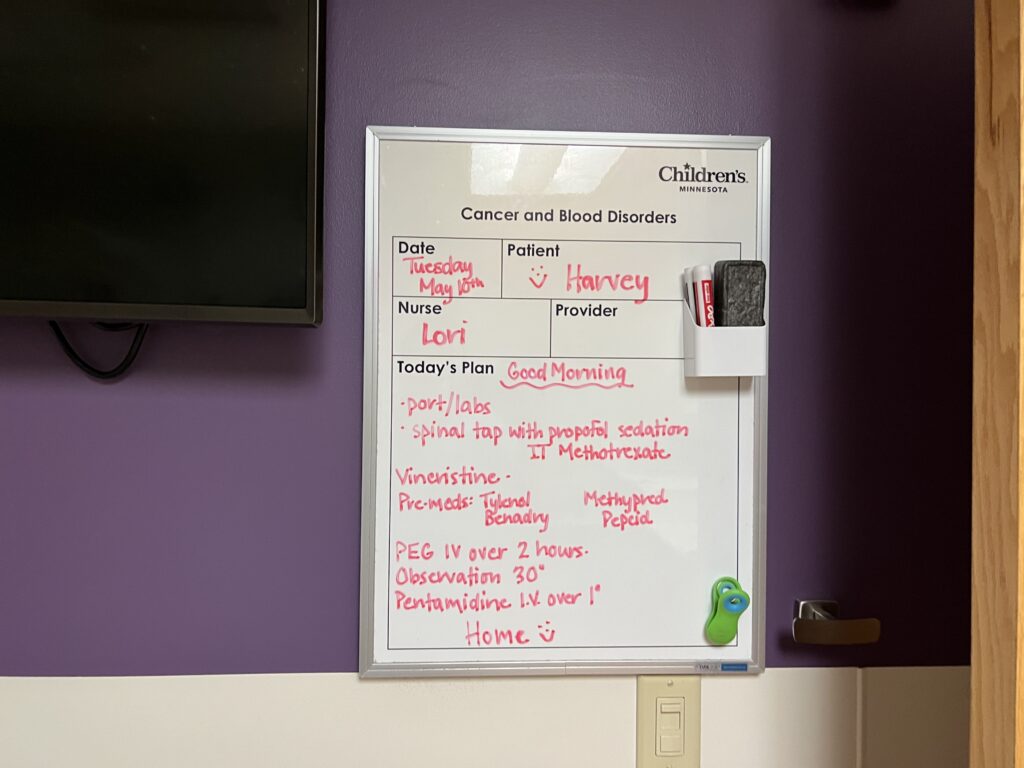 Children's
MINNESOTA
Cancer and Blood Disorders
Date
Tuesday
May 10th
Patient
Harvey
Nurse
Lori
Provider
Today's Plan Good Morning
· port/labs
· spinal tap with propofol sedation
IT Methotrexate
Vincristine -
Pre-meds: Tylenol Methypred
Benadry Pepcid
PEG IV over 2 hours.
Observation 30"
Pentamidine I.V. over 1°
Home